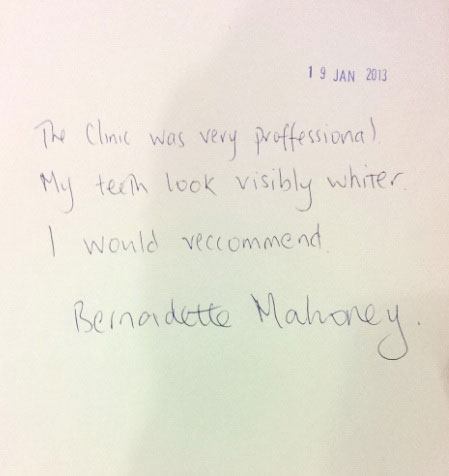 19 JAN 2013
The Clinic was very proffessional.
My teeth look visibly whiter.
I would reccommend.
Bernadette Mahoney.